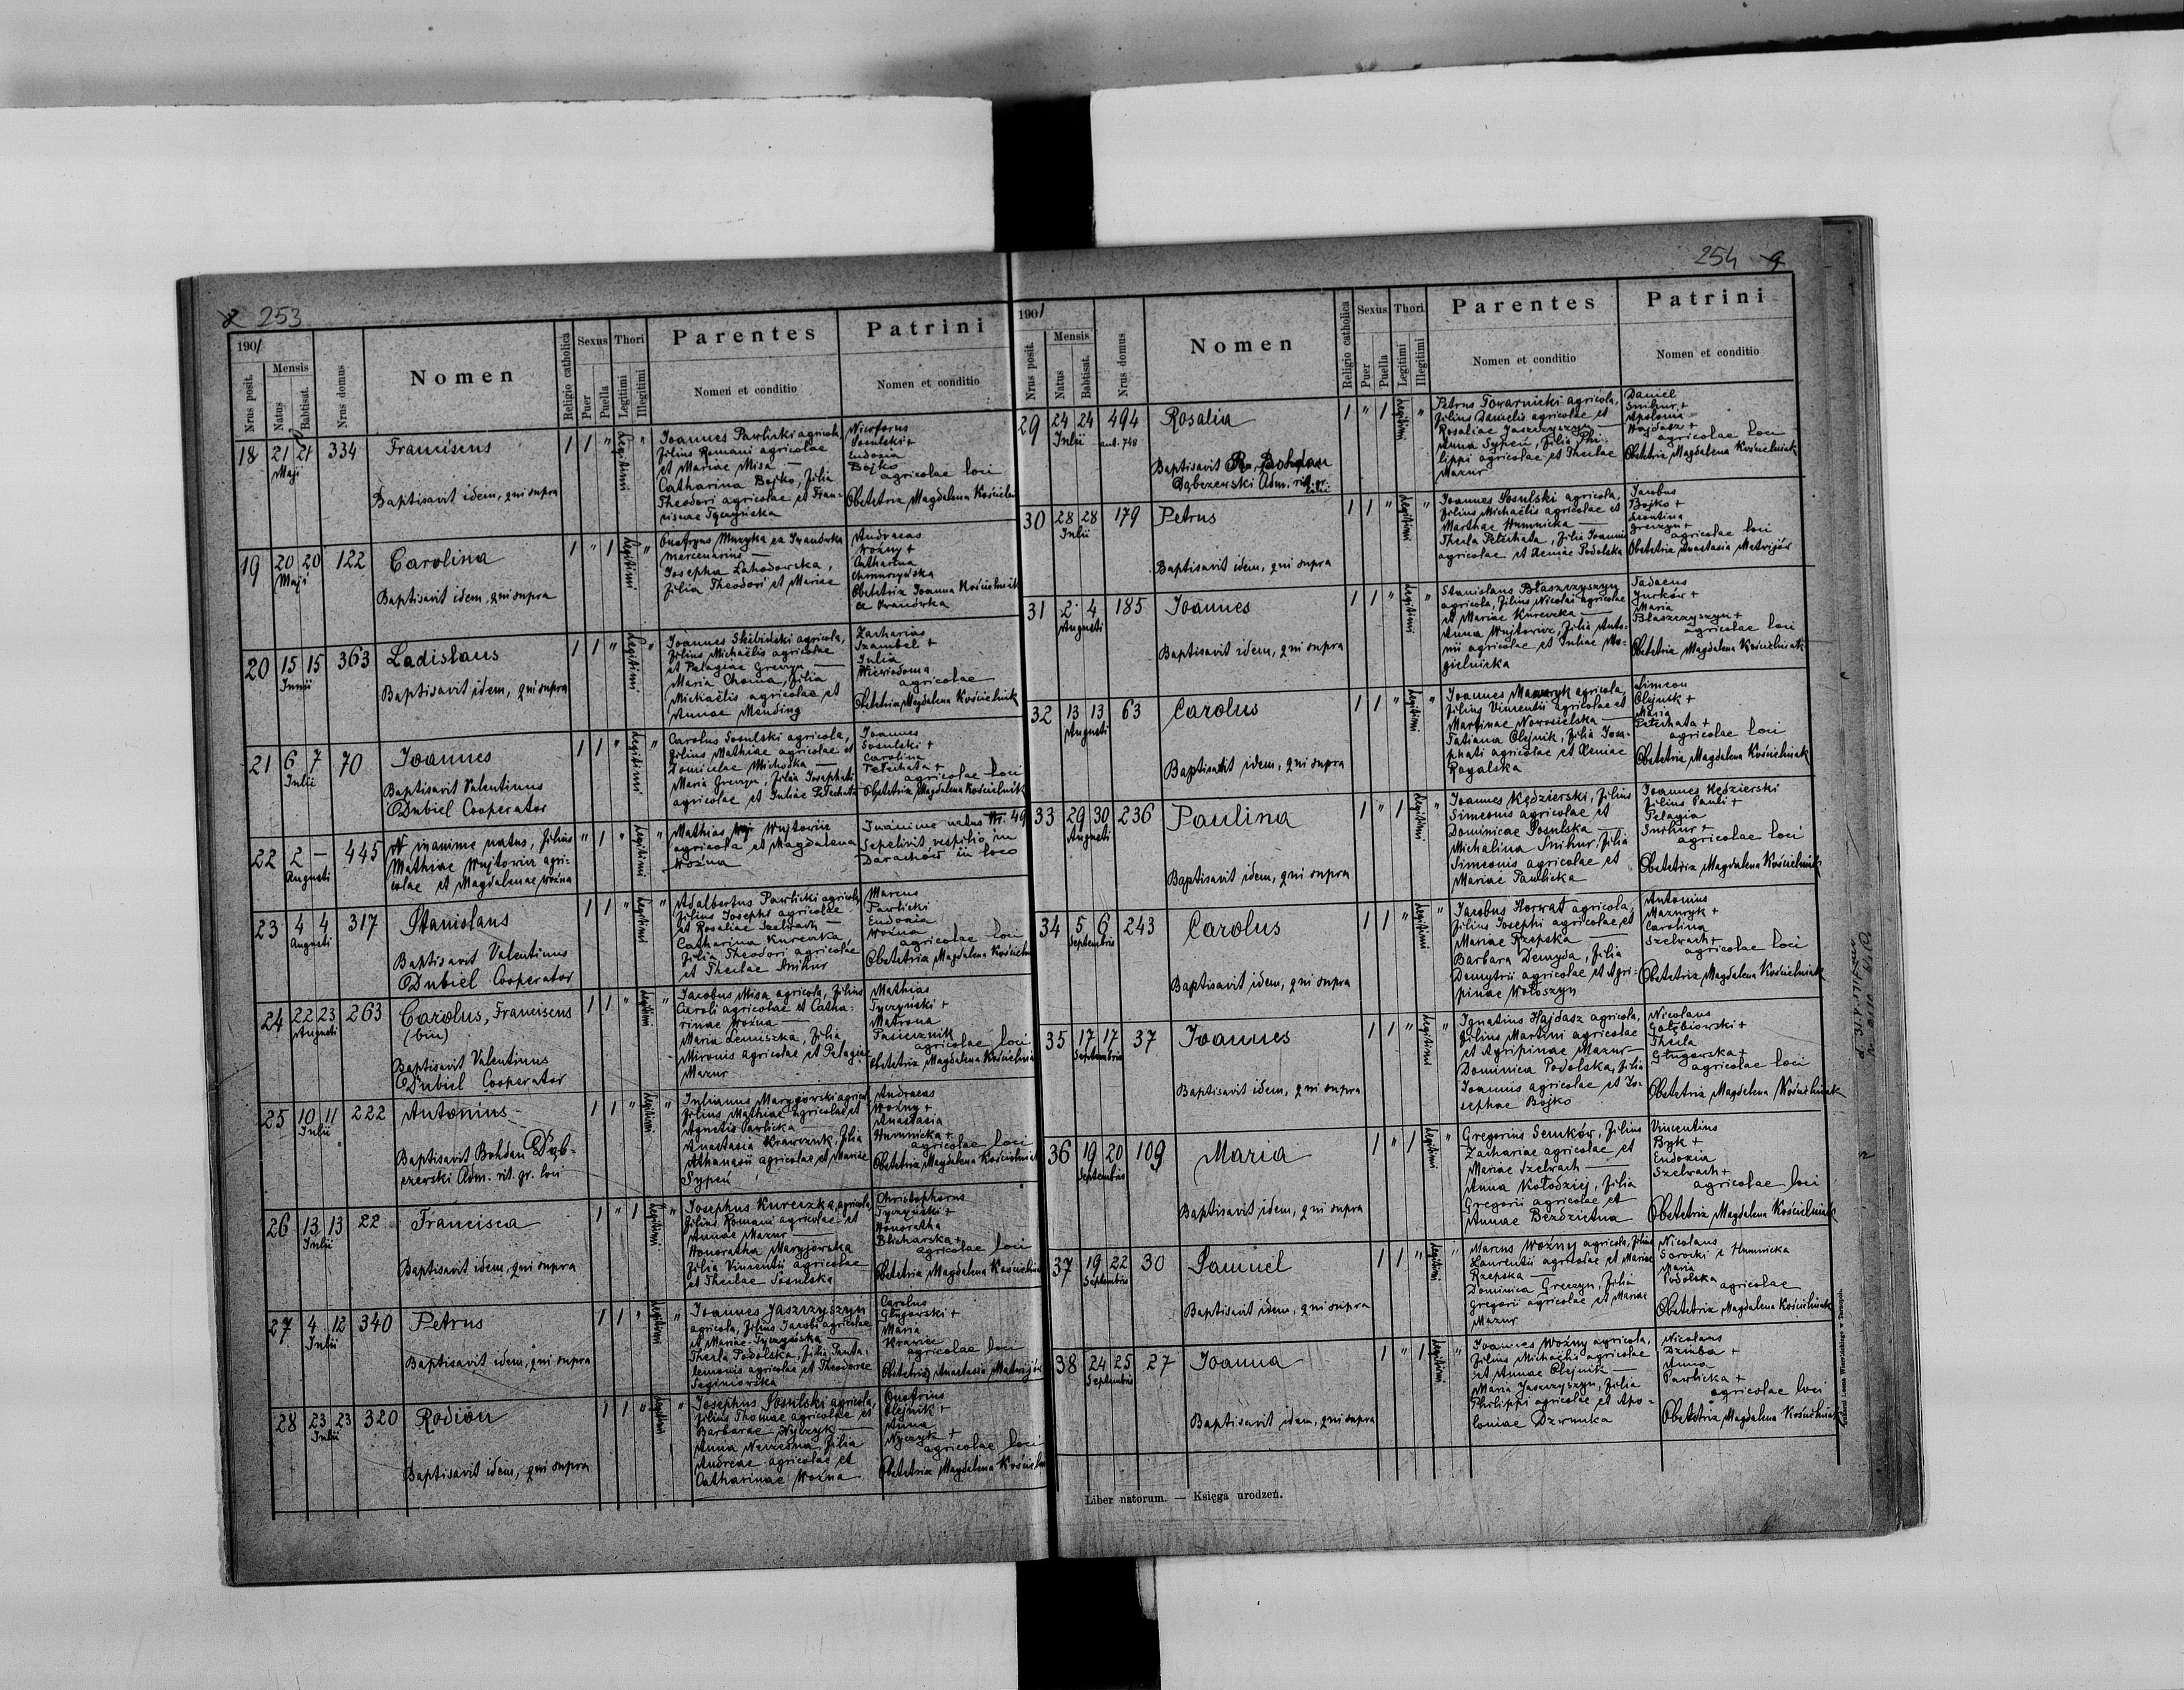 253
1901
Nrus posit.
Mensis
Natus
Babtisat.
Nrus domus
Nomen
Religio catholica
Sexus
Puer
Puella
Thori
Legitimi
Illegitimi
Parentes
Nomen et conditio
Patrini
Nomen et conditio
18 21 21 334 Franciscus 1 1 " Legitimi "
Maji
Baptisavit idem, qui supra
Ioannes Pawlicki agricola
filius Romani agricolae
et Mariae Misa —
Catharina Bojko, filia
Theodori agricolae et Fran-
ciscae Tyczyńska
Nicephorus
Sosulski +
Eudoxia
Bojko
agricolae loci
Obstetrix Magdalena Kościelniak
19 20 20 122 Carolina 1 " 1 Legitimi "
Maji
Baptisavit idem, qui supra
Onofryus Muzyka ex Iwanówka
mercenarius —
Josepha Lahodowska,
filia Theodori et Mariae
Andreas
Woźny +
Catharina
Obstetrix Joanna Kościelniak
ex Iwanówka
20 15 15 363 Ladislaus 1 1 " Legitimi "
Junii
Baptisavit idem, qui supra
Ioannes Skibiński agricola,
filius Michaëlis agricolae
et Pelagiae Greczyn —
Maria Choma, filia
Michaëlis agricolae et
Annae Mending
Zacharias
Szambel +
Julia
Niewiadoma
agricolae
Obstetrix Magdalena Kościelniak
21 6 7 70 Ioannes 1 1 " Legitimi "
Julii
Baptisavit Valentinus
Dubiel Cooperator
Carolus Sosulski agricola,
filius Mathiae agricolae et
Domicelae Michoska —
Maria Greczyn, filia Josaphati
agricolae et Juliae Petechata
Ioannes
Sosulski +
Carolina
Petechata +
agricolae loci
Obstetrix Magdalena Kościelniak
22 2 — 445 N inanime natus, filius " 1 " Legitimi "
Augusti
Mathiae Wujtowicz agri-
colae et Magdalenae Woźna
Mathias Wujtowicz
agricola et Magdalena
Woźna
Inanime natus Nr. 49
Sepelivit vespilio in
Darachów in loco
23 4 4 317 Stanislaus 1 1 " Legitimi "
Augusti
Baptisavit Valentinus
Dubiel Cooperator
Adalbertus Pawlicki agricola
filius Josephi agricolae
et Rosaliae Szelwach —
Catharina Kureczka,
filia Theodori agricolae
et Theclae Snihur
Marcus
Pawlicki
Eudoxia
Woźna
agricolae loci
Obstetrix Magdalena Kościelniak
24 22 23 263 Carolus, Franciscus 1 1 " Legitimi "
Augusti
(bin)
Baptisavit Valentinus
Dubiel Cooperator
Jacobus Misa agricola, filius
Caroli agricolae et Catha-
rinae Woźna —
Maria Lemiszka, filia
Mironis agricolae et Pelagiae
Mazur
Mathias
Tyczyński +
Matrona
Pasiecznik
agricolae loci
Obstetrix Magdalena Kościelniak
25 10 11 222 Antonius 1 1 " Legitimi "
Julii
Baptisavit Bohdan Dąb-
czewski Adm. rit. gr. loci
Julianus Maryjowski agricola
filius Mathiae agricolae et
Agnetis Pawlicka —
Anastasia Krawczuk, filia
Athanasii agricolae et Mariae
Sypeń
Andreas
Woźny +
Anastasia
Humnicka +
agricolae loci
Obstetrix Magdalena Kościelniak
26 13 13 22 Francisca 1 " 1 Legitimi "
Julii
Baptisavit idem, qui supra
Josephus Kureczka, agricola
filius Romani agricolae et
Annae Mazur —
Honoratha Maryjowska
filia Vincentii agricolae
et Theclae Sosulska
Christophorus
Tyczyński +
Honoratha
Blicharska +
agricolae loci
Obstetrix Magdalena Kościelniak
27 4 12 340 Petrus 1 1 " Legitimi "
Julii
Baptisavit idem, qui supra
Ioannes Jaszczyszyn
agricola, filius Jacobi agricolae
et Mariae Tyczyńska —
Thecla Podolska, filia Panta-
lemonis agricolae et Theodorae
Carolus
Glugowski +
Maria
Krawiec
agricolae loci
Obstetrix Anastasia Matwijów
28 23 23 320 Rodion 1 1 " Legitimi "
Julii
Baptisavit idem, qui supra
Josephus Sosulski agricola,
filius Thomae agricolae et
Barbarae Nyczyk —
Anna Newedna, filia
Andreae agricolae et
Catharinae Woźna
Onofrius
Olejnik +
Anna
Nyczyk +
agricolae loci
Obstetrix Magdalena Kościelniak
254 9
1901
Nrus posit.
Mensis
Natus
Babtisat.
Nrus domus
Nomen
Religio catholica
Sexus
Puer
Puella
Thori
Legitimi
Illegitimi
Parentes
Nomen et conditio
Patrini
Nomen et conditio
29 24 24 494 Rosalia 1 " 1 Legitimi "
Julii ant. 748
Baptisavit Bohdan
Dąbczewski Adm. rit. gr.
loci
Petrus Towarnicki agricola,
filius Danielis agricolae et
Rosaliae Jaszczyszyn —
Anna Sypeń, filia Phi-
lippi agricolae et Theclae
Mazur
Daniel
Snihur +
Apolonia
Hajdasz +
agricolae loci
Obstetrix Magdalena Kościelniak
30 28 28 179 Petrus 1 1 " Legitimi "
Julii
Baptisavit idem, qui supra
Ioannes Sosulski agricola,
filius Michaëlis agricolae et
Marthae Humnicka —
Thecla Petechata, filia Ioannis
agricolae et Xeniae Podolska
Jacobus
Bojko +
Leontina
Greczyn +
agricolae loci
Obstetrix Anastasia Matwijów
31 2 4 185 Ioannes 1 1 " Legitimi "
Augusti
Baptisavit idem, qui supra
Stanislaus Błaszczyszyn
agricola, filius Nicolai agricolae
et Mariae Kureczka —
Anna Wujtowicz, filia Anto-
nii agricolae et Juliae Mo-
gielnicka
Tadaeus
Jurków +
Maria
Błaszczyszyn +
agricolae loci
Obstetrix Magdalena Kościelniak
32 13 13 63 Carolus 1 1 " Legitimi "
Augusti
Baptisavit idem, qui supra
Ioannes Mazuryk agricola,
filius Vincentii agricolae et
Martinae Nowosielska —
Tatiana Olejnik, filia Josa-
phati agricolae et Xeniae
Rogalska
Simeon
Olejnik +
Maria
Petechata +
agricolae loci
Obstetrix Magdalena Kościelniak
33 29 30 236 Paulina 1 " 1 Legitimi "
Augusti
Baptisavit idem, qui supra
Ioannes Kędzierski, filius
Simeonis agricolae et
Dominicae Sosulska —
Michalina Snihur, filia
Simeonis agricolae et
Mariae Pawlicka
Ioannes Kędzierski
filius Pauli +
Pelagia
Snihur +
agricolae loci
Obstetrix Magdalena Kościelniak
34 5 6 243 Carolus 1 1 " Legitimi "
Septembris
Baptisavit idem, qui supra
Jacobus Horwat agricola,
filius Josephi agricolae et
Mariae Rzepska —
Barbara Demyda, filia
Demytrii agricolae et Agri-
pinae Wołoszyn
Antonius
Mazuryk +
Carolina
Szelwach +
agricolae loci
Obstetrix Magdalena Kościelniak
35 17 17 37 Ioannes 1 1 " Legitimi "
Septembris
Baptisavit idem, qui supra
Ignatius Hajdasz agricola,
filius Martini agricolae
et Agripinae Mazur —
Dominica Podolska, filia
Ioannis agricolae et Jo-
sephae Bojko
Nicolaus
Gołębiowski +
Thecla
Glugowska +
agricolae loci
Obstetrix Magdalena Kościelniak
36 19 20 109 Maria 1 " 1 Legitimi "
Septembris
Baptisavit idem, qui supra
Gregorius Semków, filius
Zachariae agricolae et
Mariae Szelwach —
Anna Kołodziej, filia
Gregorii agricolae et
Annae Bezdzietna
Vincentius
Byk +
Eudoxia
Szelwach +
agricolae loci
Obstetrix Magdalena Kościelniak
37 19 22 30 Samuel 1 1 " Legitimi "
Septembris
Baptisavit idem, qui supra
Marcus Woźny agricola, filius
Laurentii agricolae et Mariae
Rzepska —
Dominica Greczyn, filia
Gregorii agricolae et Mariae
Mazur
Nicolaus
Sorocki z Humnicka
Maria
Podolska
agricolae
Obstetrix Magdalena Kościelniak
38 24 25 27 Ioanna 1 " 1 Legitimi "
Septembris
Baptisavit idem, qui supra
Ioannes Woźny agricola,
filius Michaëlis agricolae
et Annae Olejnik —
Maria Jaszczyszyn, filia
Philippi agricolae et Apo-
loniae Dzwinka
Nicolaus
Dziuba +
Anna
Pawlicka +
agricolae loci
Obstetrix Magdalena Kościelniak
Liber natorum. — Księga urodzeń.